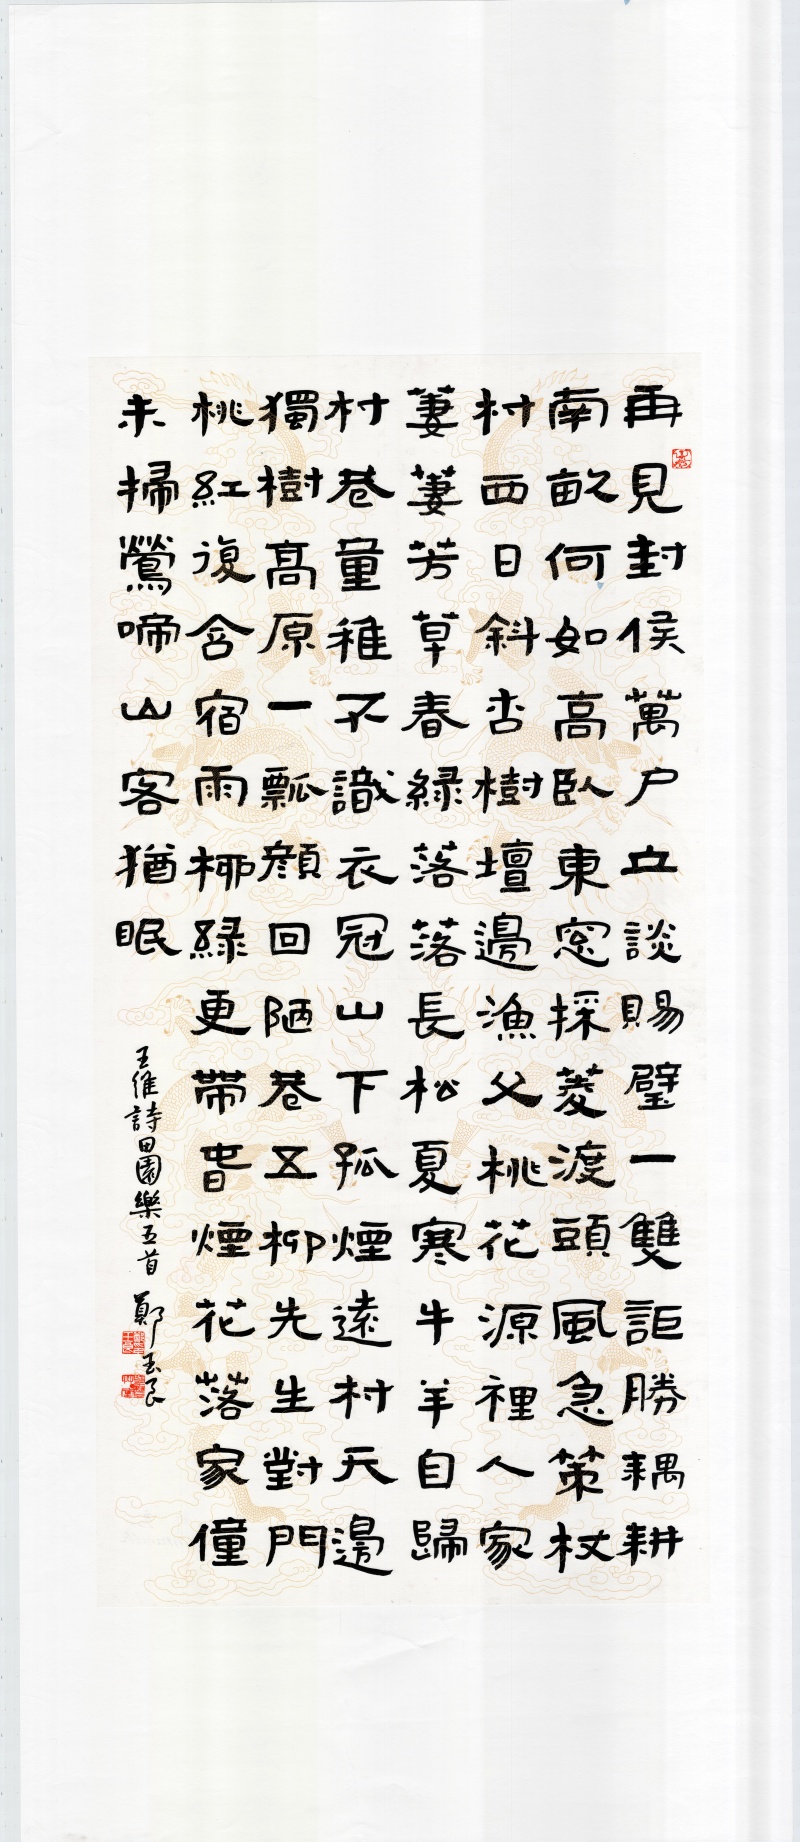 再見封侯萬戶立談賜璧一雙詎勝耦耕
南畝何如高臥東窓採菱渡頭風急策杖
村西日斜杏樹壇邊漁父桃花源裡人家
萋萋芳草春緑落落長松夏寒牛羊自歸
村巷童稚不識衣冠山下孤煙遠村天邊
獨樹高原一瓢顏回陋巷五柳先生對門
桃紅復含宿雨柳緑更帶春煙花落家僮
未掃鶯啼山客猶眠
王維詩田園樂五首 鄭玉良